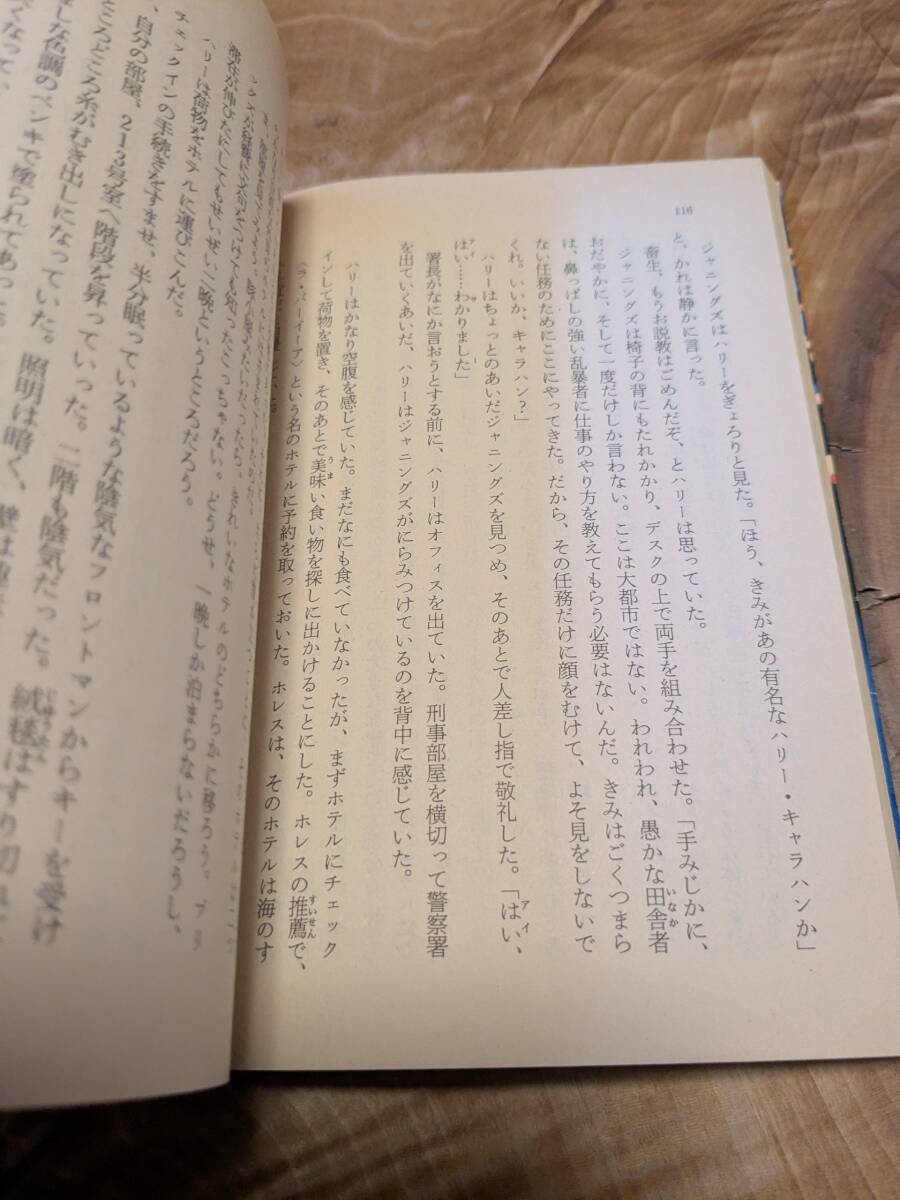 116
ジャニングズはハリーをぎょろりと見た。「ほう、きみがあの有名なハリー・キャラハンか」
と、かれは静かに言った。
畜生、もうお説教はごめんだぞ、とハリーは思っていた。
ジャニングズは椅子の背にもたれかかり、デスクの上で両手を組み合わせた。「手みじかに、
おだやかに、そして一度だけしか言わない。ここは大都市ではない。われわれ、愚かな田舎者
は、鼻っぱしの強い乱暴者に仕事のやり方を教えてもらう必要はないんだ。きみはごくつまら
ない任務のためにここにやってきた。だから、その任務だけに顔をむけて、よそ見をしないで
くれ。いいか、キャラハン？」
ハリーはちょっとのあいだジャニングズを見つめ、そのあとで人差し指で敬礼した。「はい、
はい……わかりました」
署長がなにか言おうとする前に、ハリーはオフィスを出ていた。刑事部屋を横切って警察署
を出ていくあいだ、ハリーはジャニングズがにらみつけているのを背中に感じていた。
ハリーはかなり空腹を感じていた。まだなにも食べていなかったが、まずホテルにチェック
インして荷物を置き、そのあとで美味い食い物を探しに出かけることにした。ホレスの推薦で、
〈ラ・バーイーアン〉という名のホテルに予約を取っておいた。ホレスは、そのホテルは海のす
きれいなホテルのどちらかに移ろう。ブリ
っても知ったこっちゃない。どうせ、一晩しか泊まらないだろうし、
滞在が伸びたにしてもせいぜい二晩というところだろう。
ハリーは荷物をホテルに運びこんだ。
チェックインの手続きをすませ、半分眠っているような陰気なフロントマンからキーを受け
、自分の部屋、213号室へ階段を昇っていった。二階も陰気だった。絨毯はすり切れて
ところどころ糸がむき出しになっていた。照明は暗く、壁は
な色調のペンキで塗られてあった。
くなって、